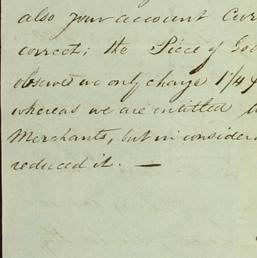 also your account Cur
correct; the Piece of Go
observe we only charge 1/4
whereas we are entitled to
Merchants, but in consider
reduced it. —